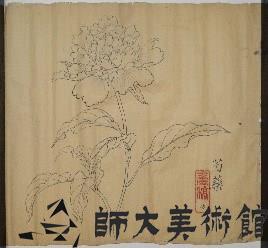 芍藥
師大美術館